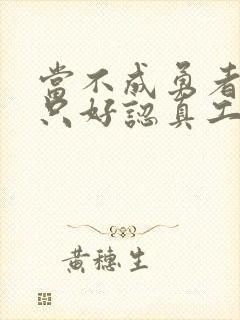 當不成勇者
只好認真工
黃穗生